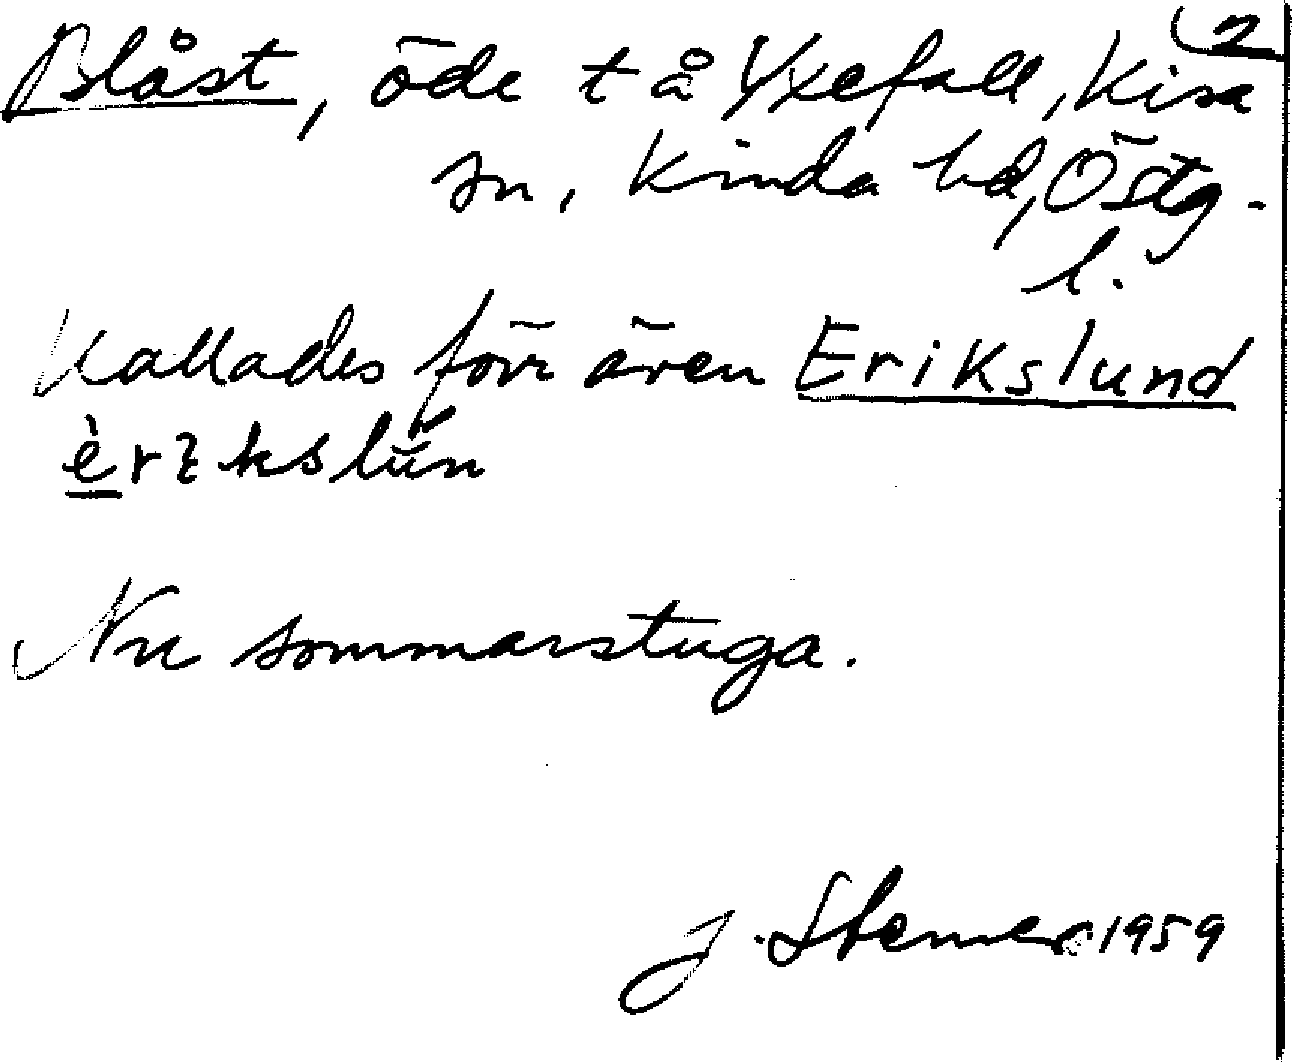 2
Blåst, öde t å Yxefall, Kisa
sn, Kinda hd, Östg.
l.
Kallades förr även Erikslund
èrɩkslūn
Nu sommarstuga.
J. 1959